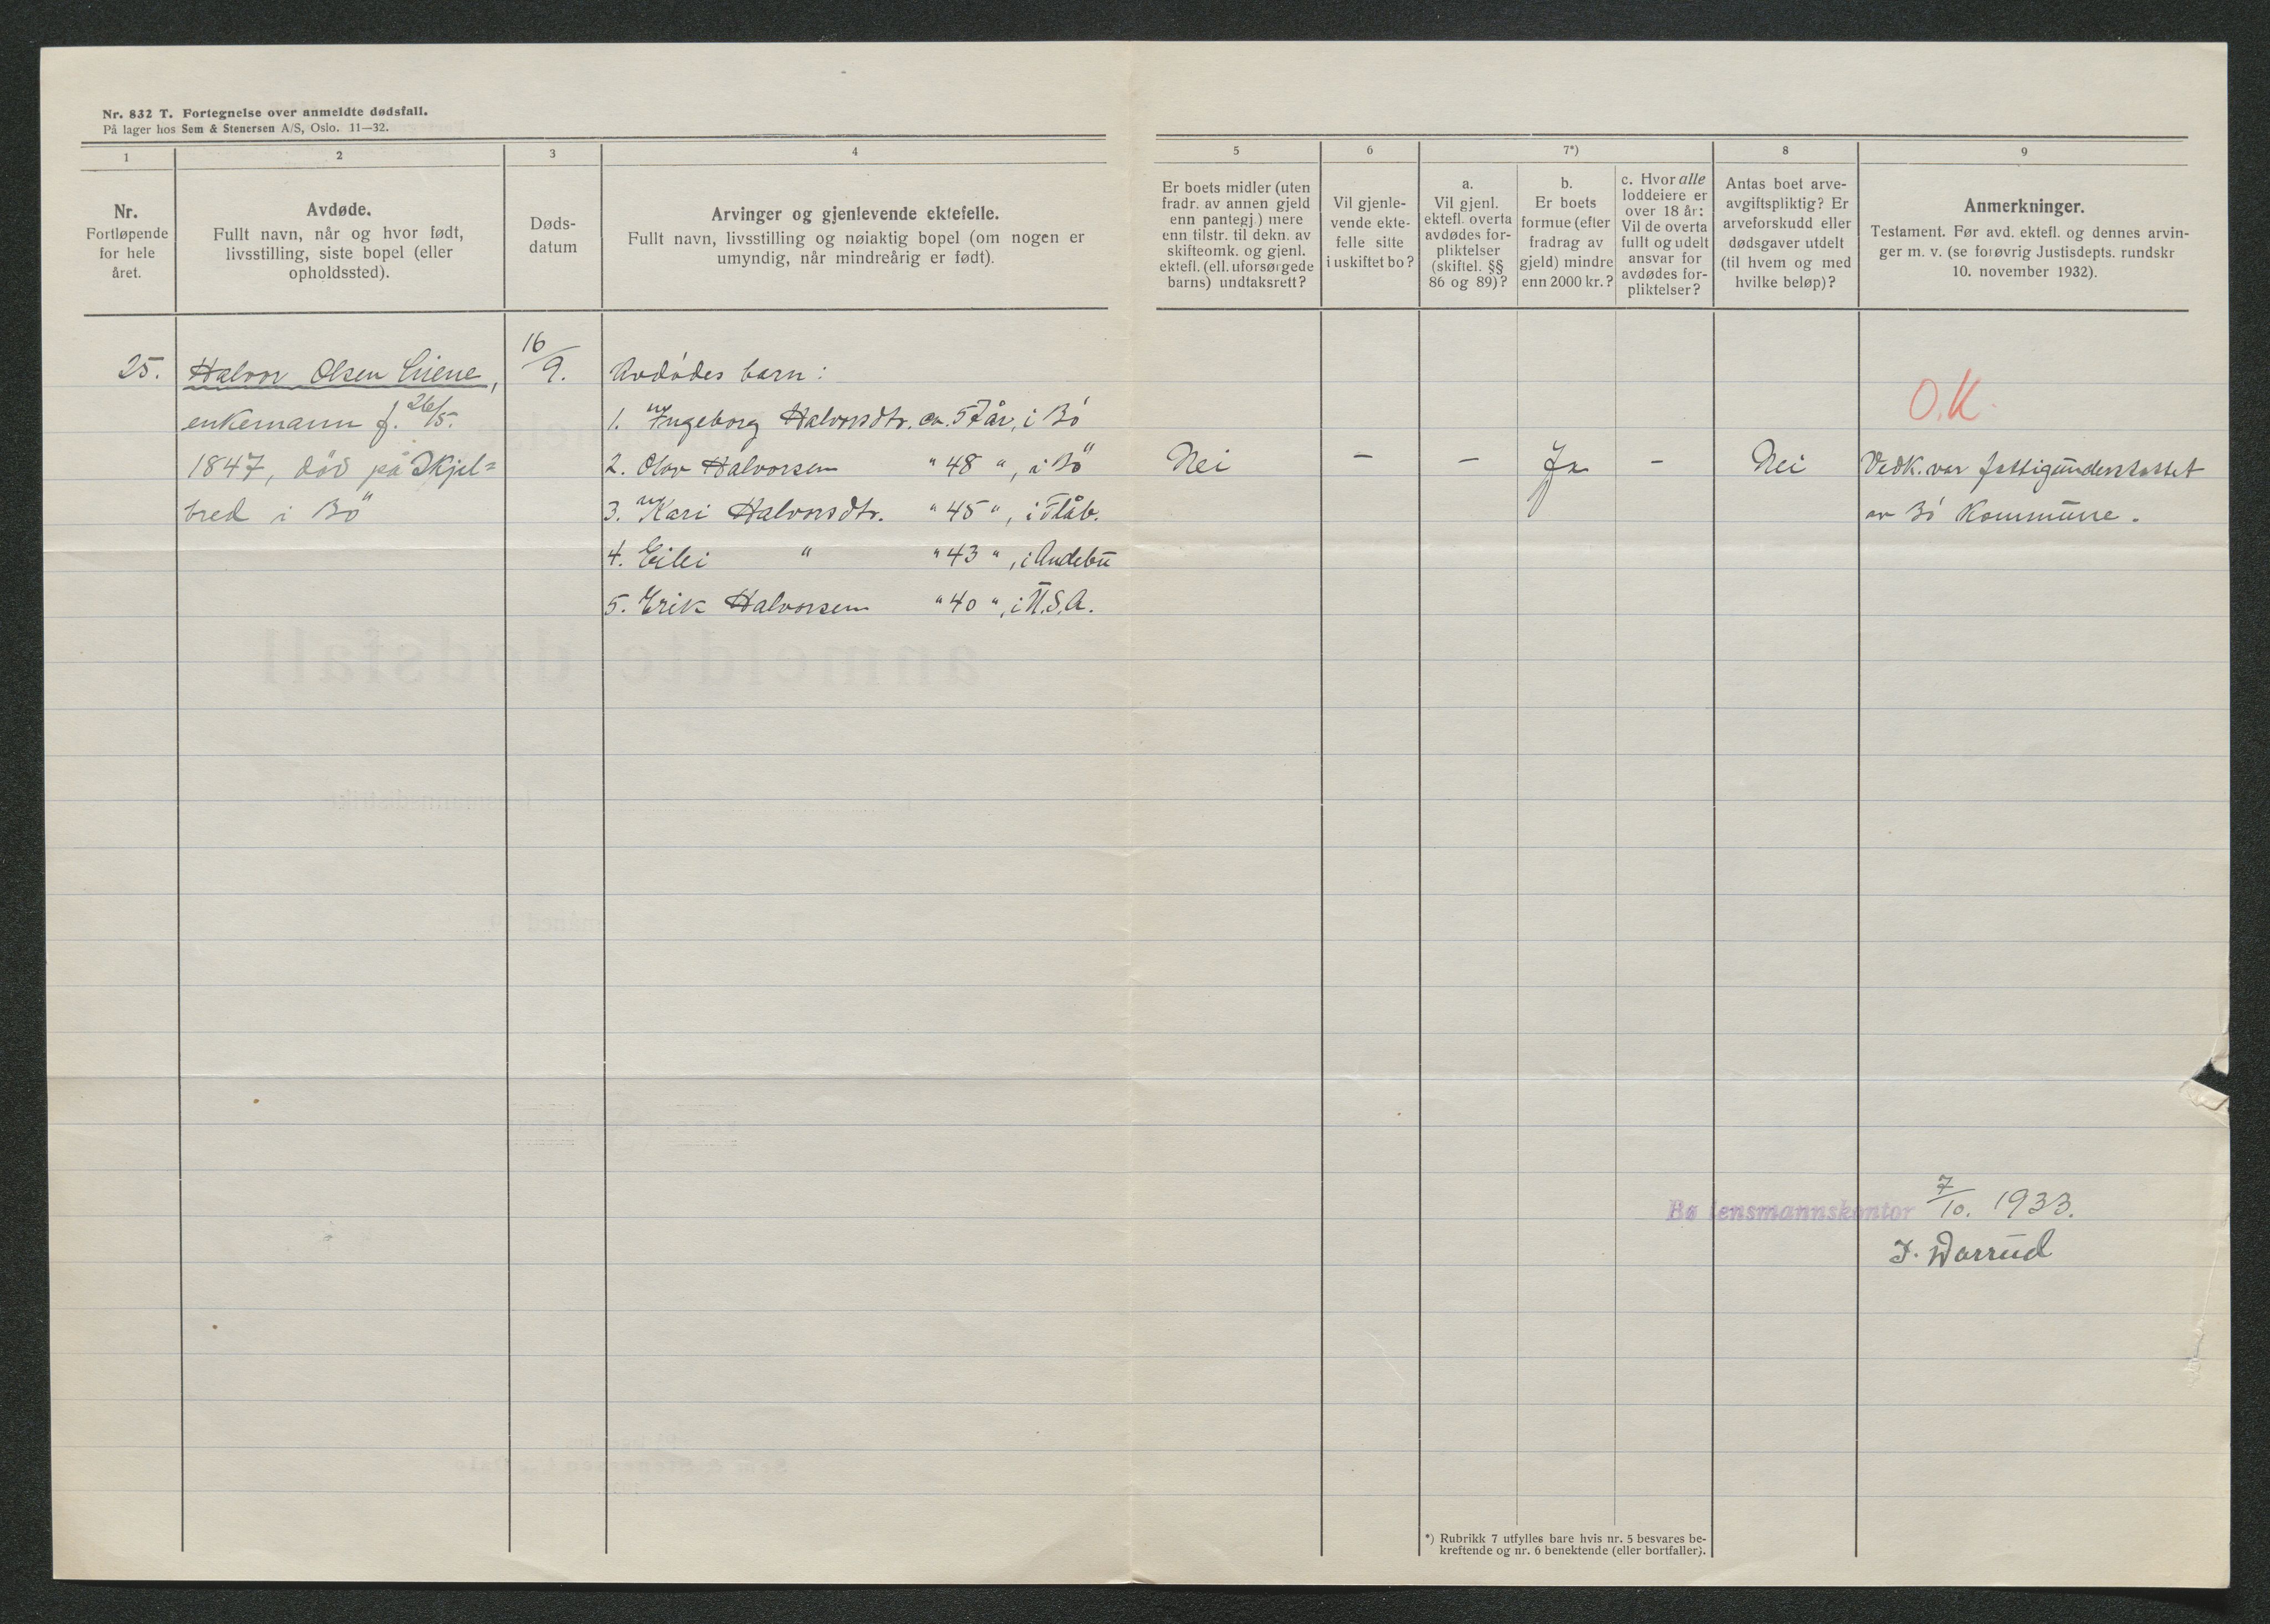 Nr. 832 T. Fortegnelse over anmeldte dødsfall.
På lager hos Sem & Stenersen A/S, Oslo. 11—32.
1
2
3
4
5
6
7*)
8
9
Nr.
Fortløpende
for hele
året.
Avdøde.
Fullt navn, når og hvor født,
livsstilling, siste bopel (eller
opholdssted).
Døds-
datum
Arvinger og gjenlevende ektefelle.
Fullt navn, livsstilling og nøiaktig bopel (om nogen er
umyndig, når mindreårig er født).
Er boets midler (uten
fradr. av annen gjeld
enn pantegj.) mere
enn tilstr. til dekn. av
skifteomk. og gjenl.
ektefl. (ell. uforsørgede
barns) undtaksrett?
Vil gjenle-
vende ekte-
felle sitte
i uskiftet bo?
a.
Vil gjenl.
ektefl. overta
avdødes for-
pliktelser
(skiftel. §§
86 og 89)?
b.
Er boets
formue (efter
fradrag av
gjeld) mindre
enn 2000 kr.?
c. Hvor alle
loddeiere er
over 18 år:
Vil de overta
fullt og udelt
ansvar for
avdødes for-
pliktelser?
Antas boet arve-
avgiftspliktig? Er
arveforskudd eller
dødsgaver utdelt
(til hvem og med
hvilke beløp)?
Anmerkninger.
Testament. Før avd. ektefl. og dennes arvin-
ger m. v. (se forøvrig Justisdepts. rundskr
10. november 1932).
25.
Halvor Olsen
enkemann f. 26/5.
1847, död på Skjel=
bred i Bö
16/9.
Avdödes barn:
1. Ingeborg Halvorsdtr. ca. 57 år, i Bö
2. Olav Halvorsen " 48 ", i Bö
3. Kari Halvorsdtr. " 45 ", i Flåb.
4. Eilei " " 43 ", i Andebu
5. Erik Halvorsen " 40 ", i U.S.A.
Nei
—
—
Ja
—
Nei
O.K.
Vedk. var fattigunderstøttet
av Bö Kommune.
Bø lensmannskontor 7/10. 1933.
*) Rubrikk 7 utfylles bare hvis nr. 5 besvares be-
kreftende og nr. 6 benektende (eller bortfaller).